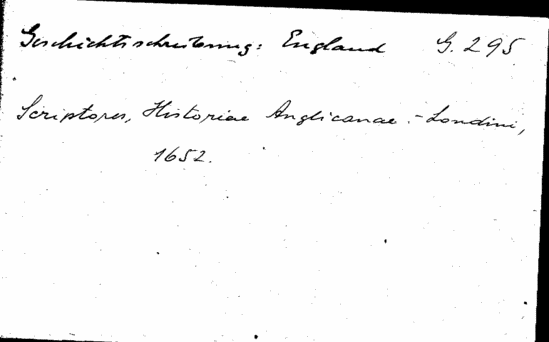 Geschichtsschreibung: England G. 295
Scriptores, Historiae Anglicanae.- Londini,
1652.